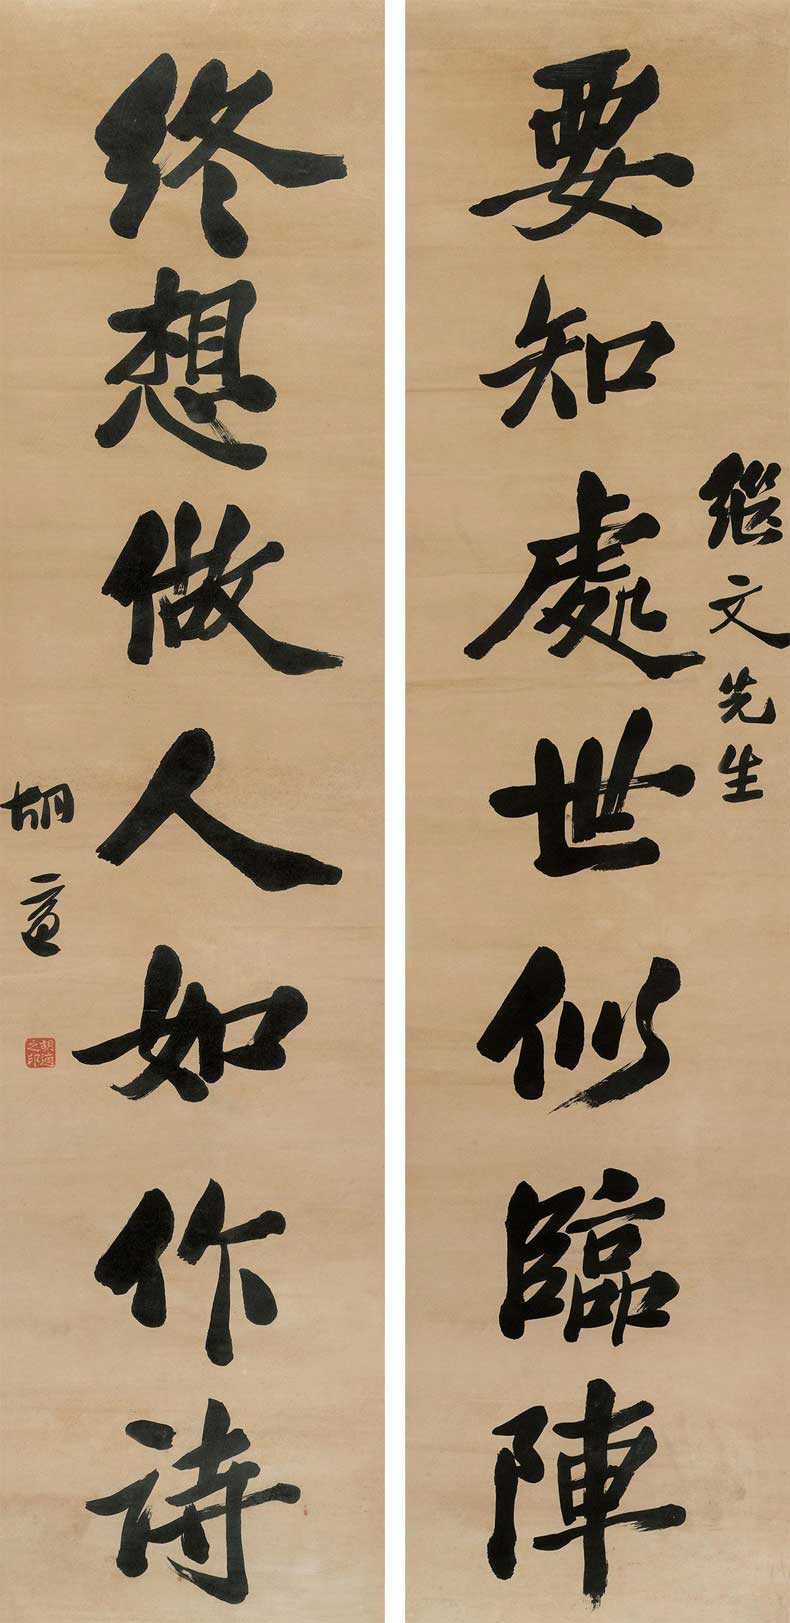 要知處世似臨陣
繼文先生
終想做人如作詩
胡適
胡適之印